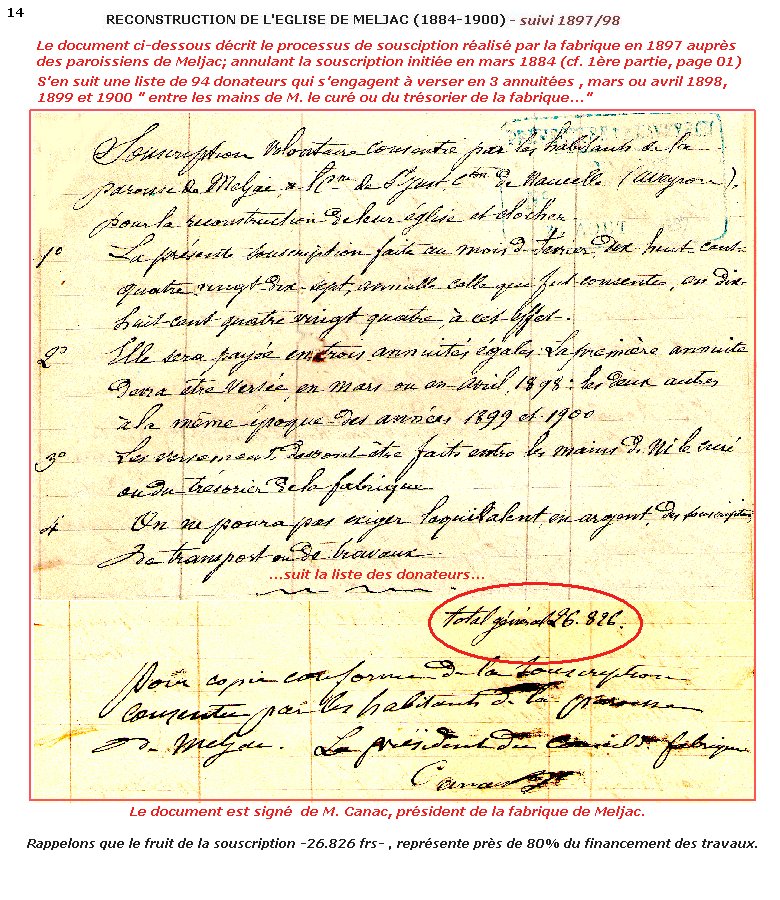 14
RECONSTRUCTION DE L'EGLISE DE MELJAC (1884-1900) - suivi 1897/98
Le document ci-dessous décrit le processus de sousciption réalisé par la fabrique en 1897 auprès
des paroissiens de Meljac; annulant la souscription initiée en mars 1884 (cf. 1ère partie, page 01)
S'en suit une liste de 94 donateurs qui s'engagent à verser en 3 annuitées , mars ou avril 1898,
1899 et 1900 " entre les mains de M. le curé ou du trésorier de la fabrique..."
Souscription volontaire consentie par les habitants de la
paroisse de Meljac, de St Just, Cton de Naucelle (Aveyron),
pour la reconstruction de leur église et clocher
1° La présente souscription faite au mois de février dix huit cent
quatre vingt dix-sept, annulle celle que fut consentie, en dix-
huit-cent quatre vingt quatre, à cet effet.
2° Elle sera payée en trois annuités égales. La première annuite
devra être versée, en mars ou en avril, 1898: les deux autres
à la même époque des années 1899 et 1900
3° Les versements devront être faits entre les mains de M. le curé
ou du trésorier de la fabrique
4 On ne poura pas exiger laquivalent, en argent, des souscriptions
de transport ou de travaux.
...suit la liste des donateurs...
total général 26.826.
Pour copie conforme de la souscription
consentie par les habitants de la paroisse
de Meljac. Le président du conseil de fabrique
Canac
Le document est signé de M. Canac, président de la fabrique de Meljac.
Rappelons que le fruit de la souscription -26.826 frs- , représente près de 80% du financement des travaux.